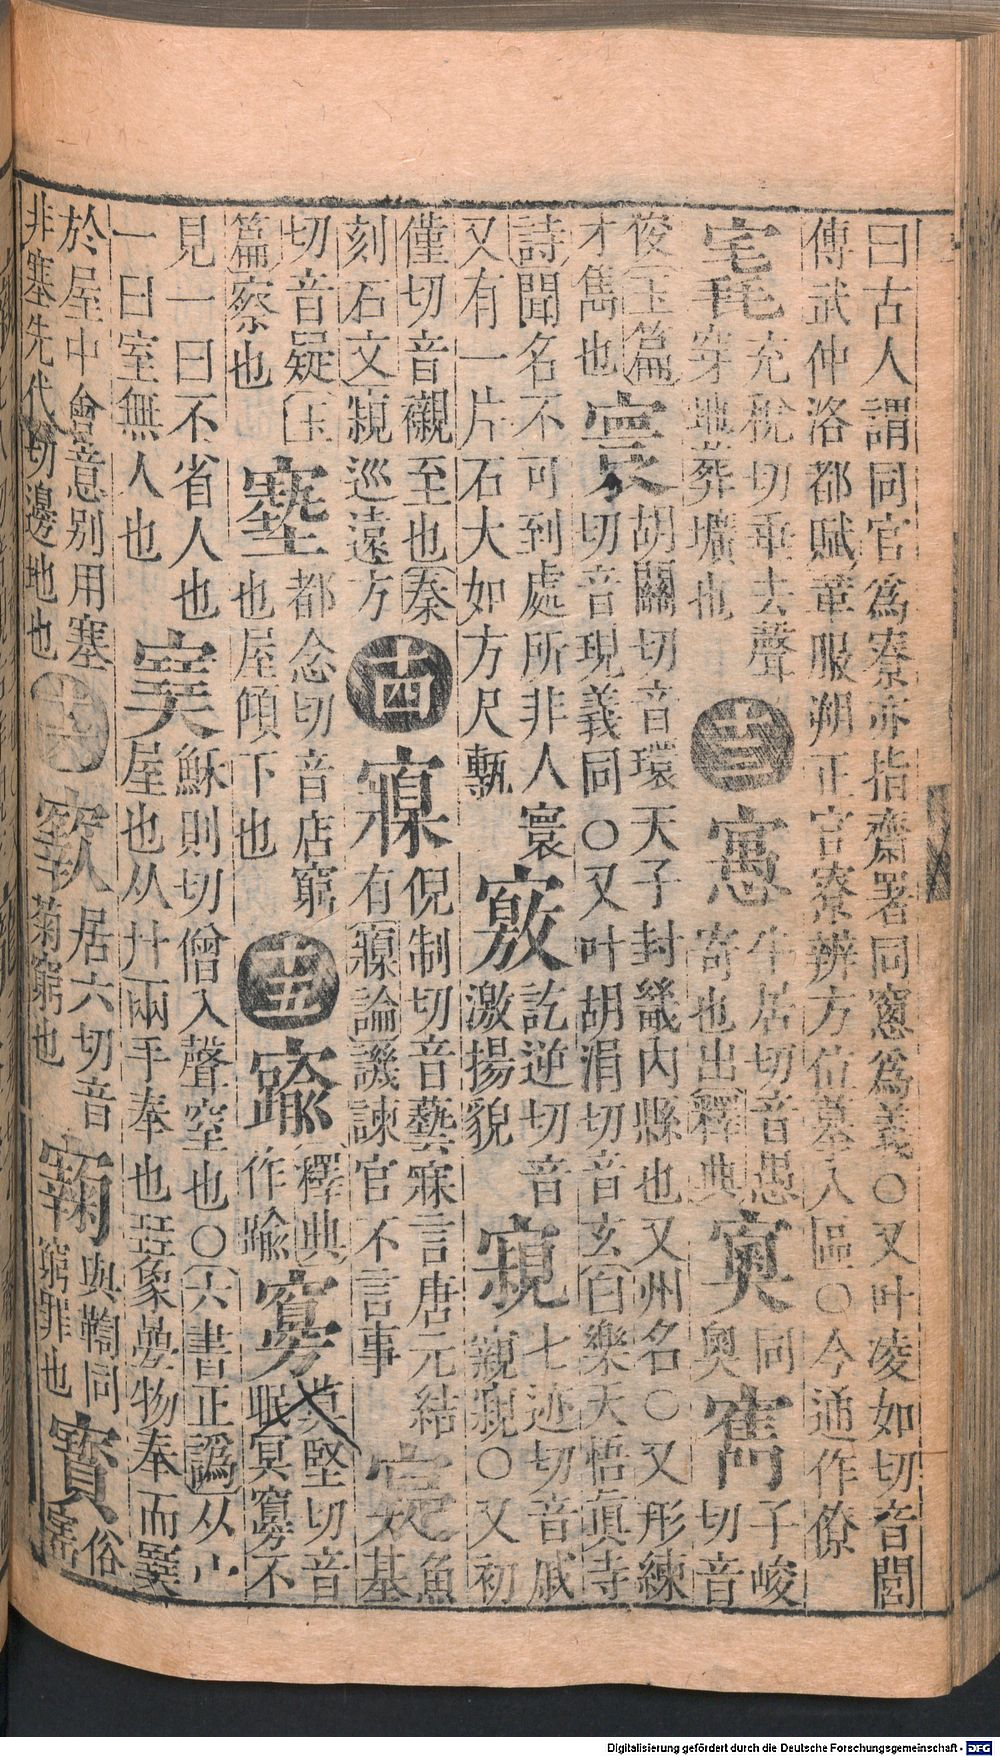 曰古人謂同官爲寮亦指齋署同窻爲義〇又叶凌如切音閭
傅武仲洛都賦革服朔正官寮辨方位墓入區〇今通作僚
竁充稅切垂去聲穿地葬壙也 十三 寭牛居切音愚寄也出釋典 寏同奥 寯子峻切音
俊玉篇才雋也 寰胡關切音環天子封畿内縣也又州名〇又彤練切音現義同〇又叶胡涓切音玄白樂天悟眞寺
詩聞名不可到處所非人寰又有一片石大如方尺甎 窽訖逆切音激揚貌 寴七迹切音戚親寴〇又初
僅切音襯至也秦刻石文寴巡遠方 十四 寱倪制切音藝寐言唐元結有寱論譏諫官不言事 魚基
切音疑玉篇察也 都念切音店窮也屋傾下也 十五 釋典作踰 寡莫堅切音眠冥寡不
見一曰不省人也一曰室無人也 蘇則切僧入聲窒也〇六書正譌从宀屋也从廾兩手奉也㠭象㝱物奉而
於屋中會意别用塞非塞先代切邊地也 十六 居六切音菊窮也 與鞫同窮罪也 寳俗寚
Digitalisierung gefördert durch die Deutsche Forschungsgemeinschaft - DFG